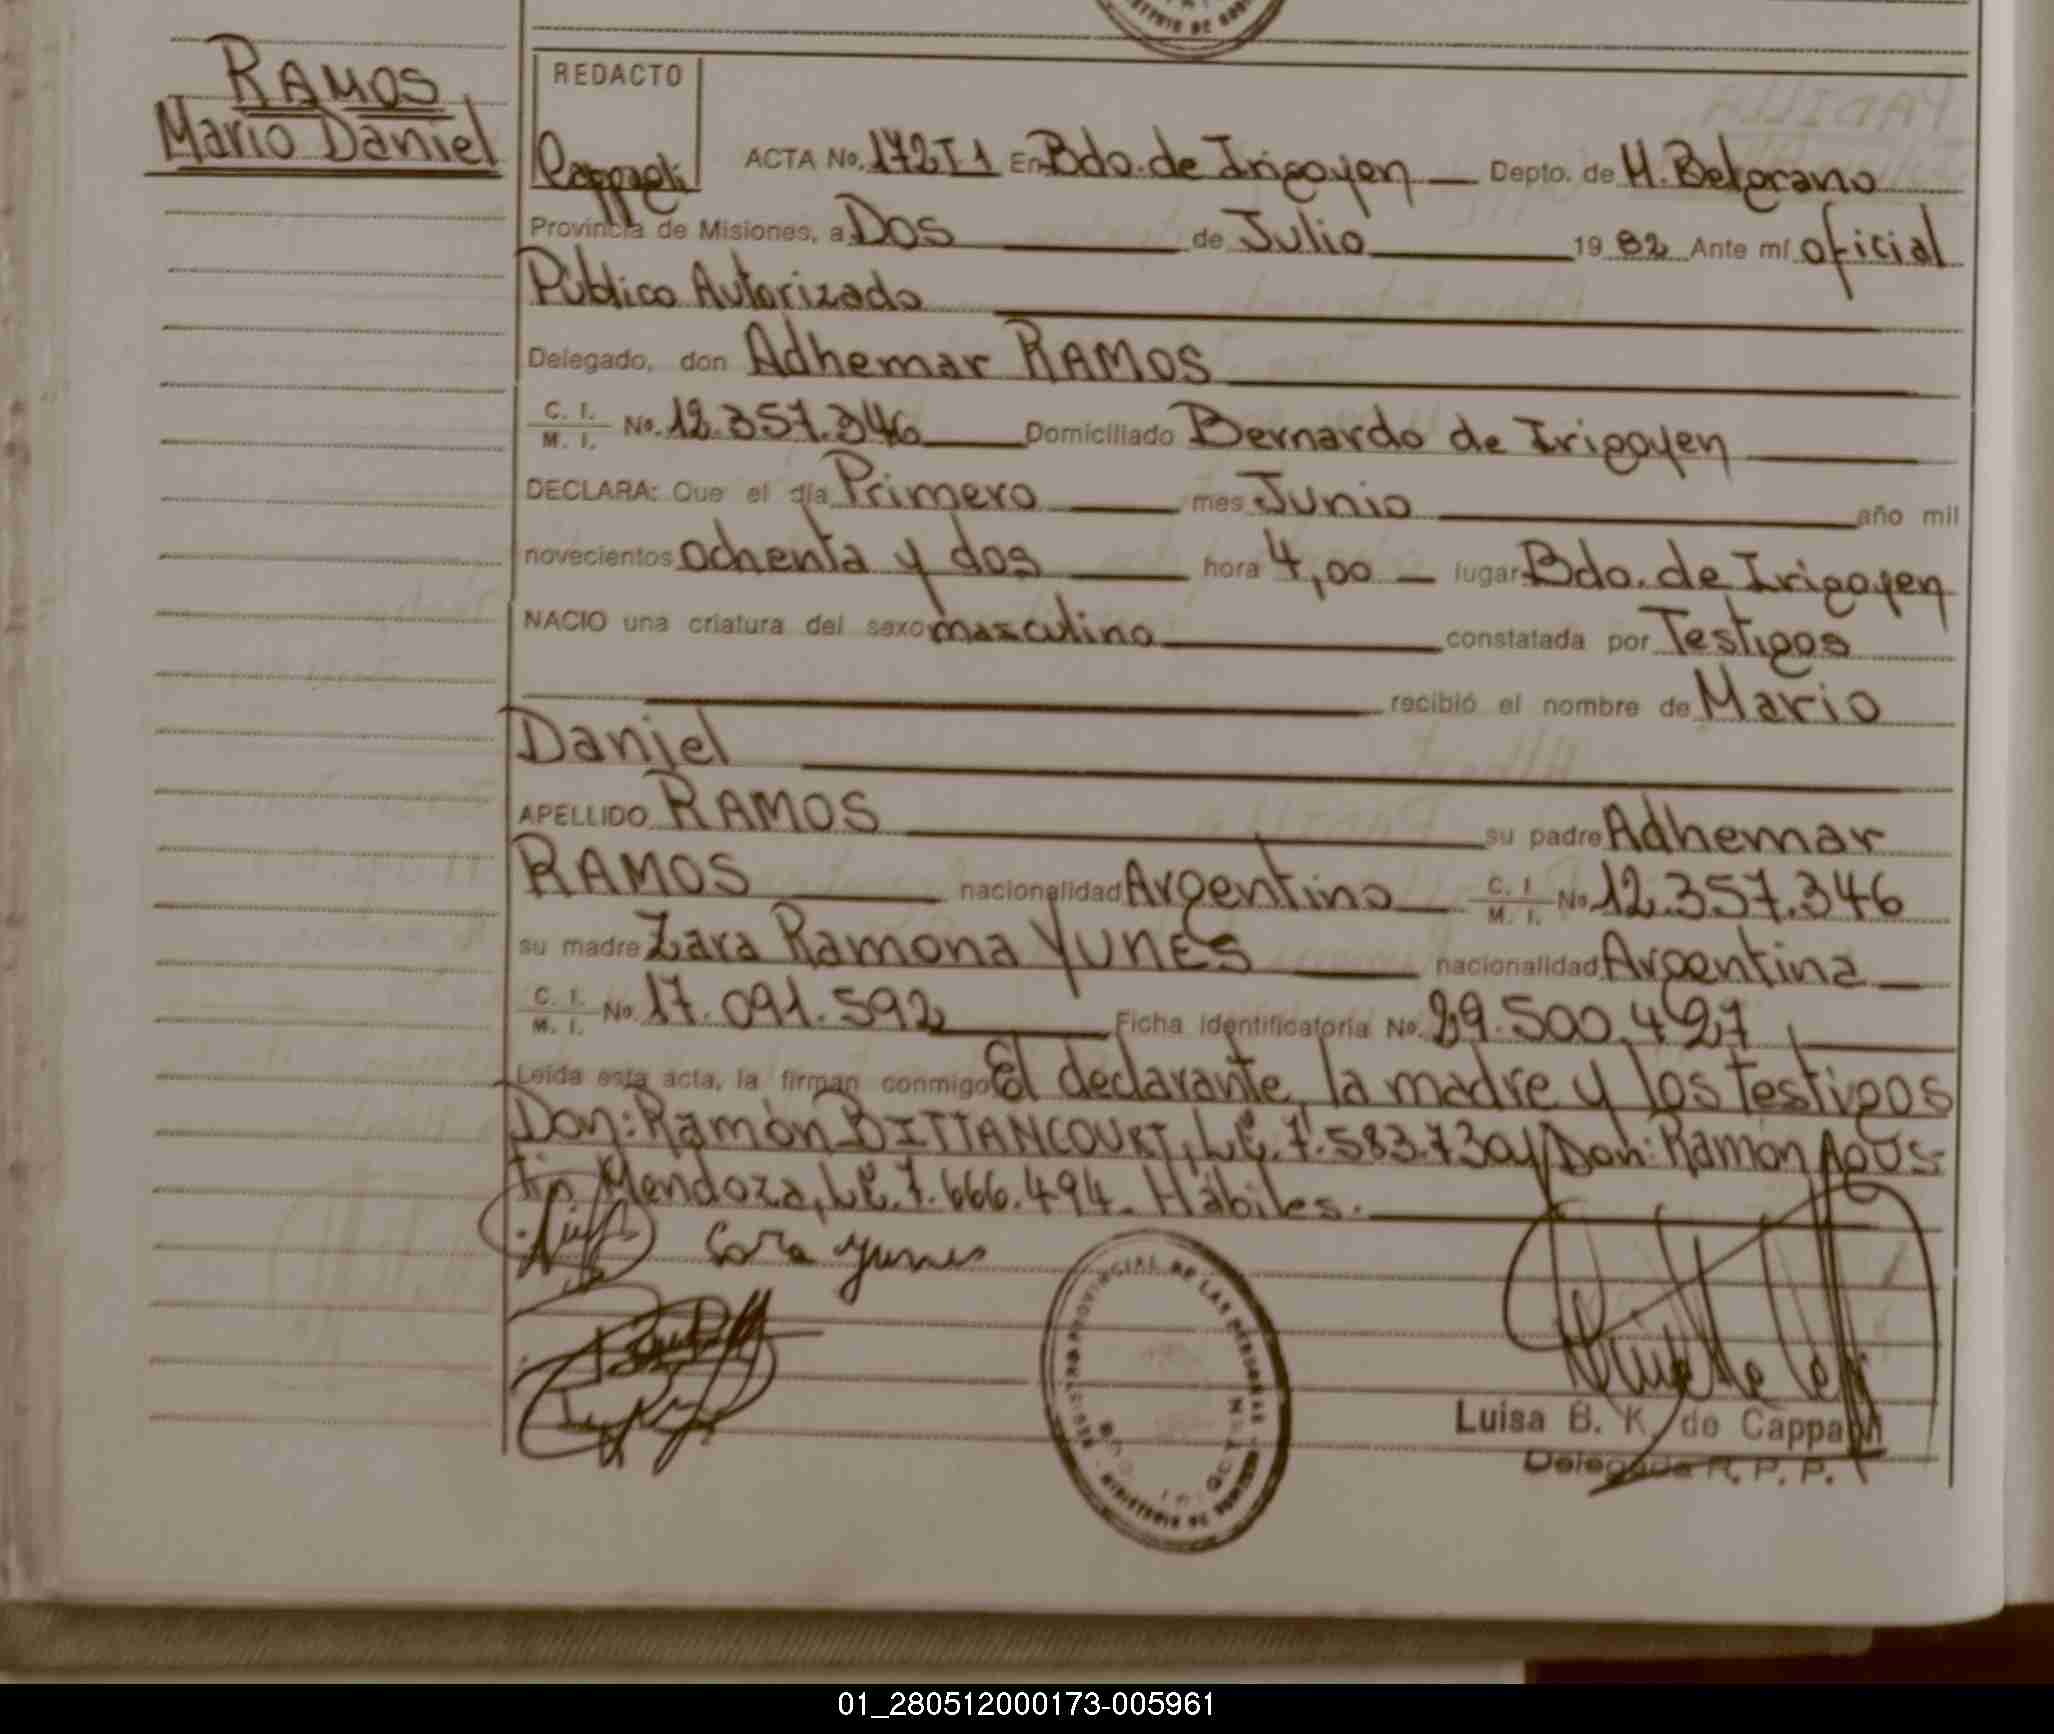 RAMOS
Mario Daniel
REDACTO
ACTA No. 172 T 1 En Bdo. de Irigoyen Depto. de M. Belgrano
Provincia de Misiones, a Dos de Julio 1982 Ante mí oficial
Público Autorizado
Delegado, don Adhemar RAMOS
C. I. / M. I. No. 12.357.346 Domiciliado Bernardo de Irigoyen
DECLARA: Que el día Primero mes Junio año mil
novecientos ochenta y dos hora 4,00 lugar Bdo. de Irigoyen
NACIO una criatura del sexo masculino constatada por Testigos
recibió el nombre de Mario
Daniel
APELLIDO RAMOS su padre Adhemar
RAMOS nacionalidad Argentino C. I. / M. I. No. 12.357.346
su madre Zara Ramona YUNES nacionalidad Argentina
C. I. / M. I. No. 17.091.592 Ficha identificatoria No. 29.500.427
Leída esta acta, la firman conmigo El declarante, la madre y los testigos
Don: Ramón BITTANCOURT, L.E. 7.583.730 y Don: Ramón Agus-
tin Mendoza, L.E. 7.666.494. Hábiles.
Sara Yunes
REGISTRO PROVINCIAL DE LAS PERSONAS
Luisa B. K. de Cappelli
Delegada R. P. P.
01_280512000173-005961